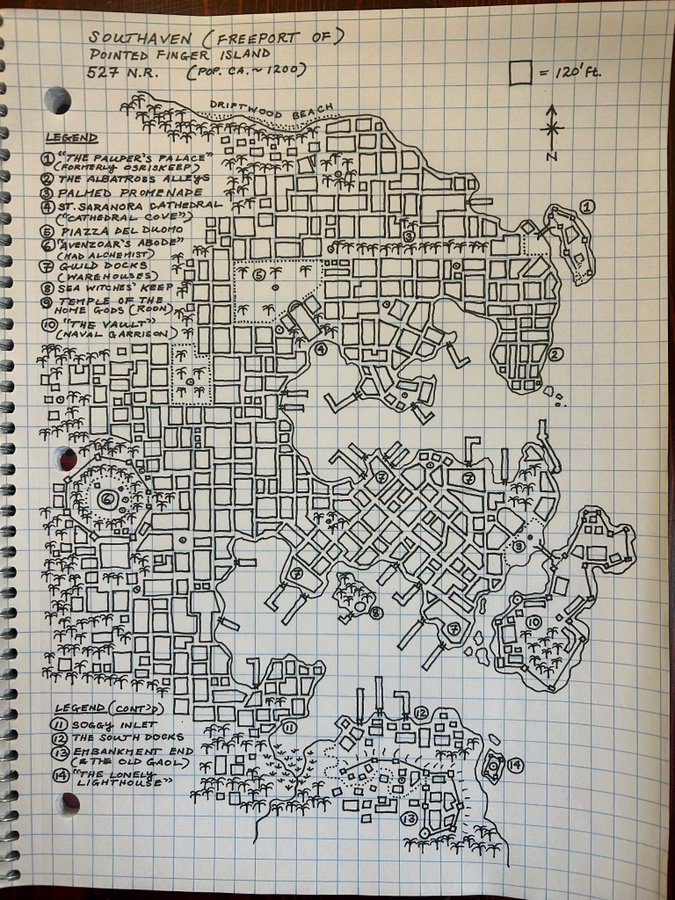 SOUTHAVEN (FREEPORT OF)
POINTED FINGER ISLAND
527 N.R. (POP. CA. ~ 1200)
= 120' ft.
N
DRIFTWOOD BEACH
LEGEND
1 "THE PAUPER'S PALACE"
(FORMERLY OSRISKEEP)
2 THE ALBATROSS ALLEYS
3 PALMED PROMENADE
4 ST. SARANORA CATHEDRAL
("CATHEDRAL COVE")
5 PIAZZA DEL DUOMO
6 "AVENZOAR'S ABODE"
(MAD ALCHEMIST)
7 GUILD DOCKS
(WAREHOUSES)
8 SEA WITCHES' KEEP
9 TEMPLE OF THE
HOME GODS (ROON)
10 "THE VAULT"
(NAVAL GARRISON)
1
3
5
4
2
7
7
6
9
7
8
10
7
LEGEND (CONT'D)
11 SOGGY INLET
12 THE SOUTH DOCKS
13 EMBANKMENT END
(& THE OLD GAOL)
14 "THE LONELY
LIGHTHOUSE"
11
12
14
13